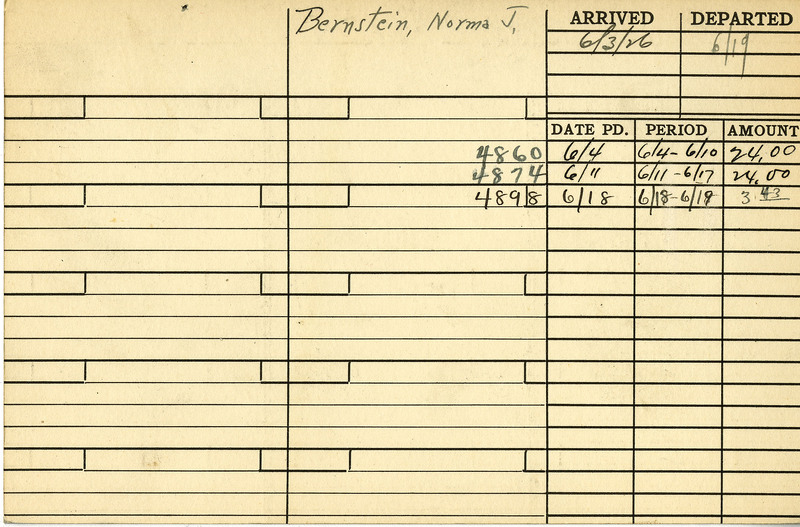 Bernstein, Norma J. ARRIVED DEPARTED
6/3/26 6/19
DATE PD. PERIOD AMOUNT
4860 6/4 6/4-6/10 24.00
4874 6/11 6/11-6/17 24.00
4898 6/18 6/18-6/18 3.43